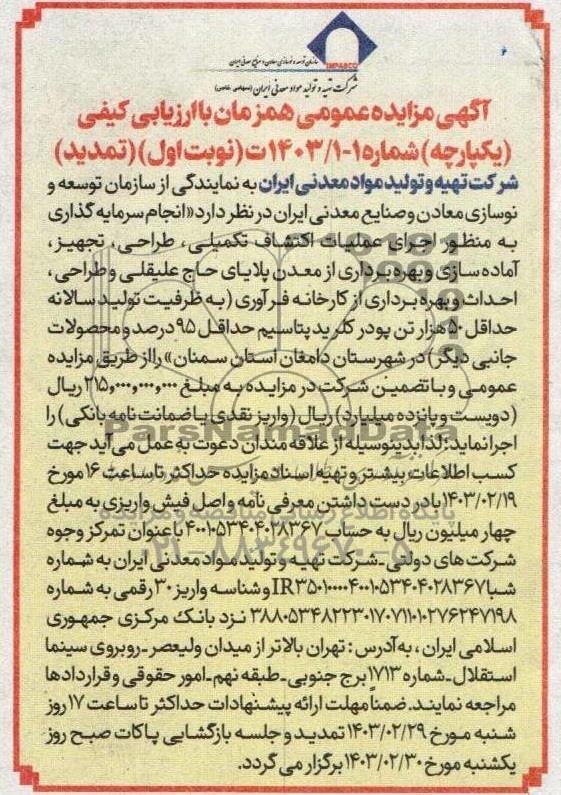 IMPASCO
سازمان توسعه و نوسازی معادن و صنایع معدنی ایران
شرکت تهیه و تولید مواد معدنی ایران (سهامی خاص)
آگهی مزایده عمومی همزمان با ارزیابی کیفی
(یکپارچه) شماره ۱-۱۴۰۳/۱ت (نوبت اول) (تمدید)
شرکت تهیه و تولید مواد معدنی ایران به نمایندگی از سازمان توسعه و
نوسازی معادن و صنایع معدنی ایران در نظر دارد «انجام سرمایه گذاری
به منظور اجرای عملیات اکتشاف تکمیلی، طراحی، تجهیز،
آماده سازی و بهره برداری از معدن پلایای حاج علیقلی و طراحی،
احداث و بهره برداری از کارخانه فرآوری (به ظرفیت تولید سالانه
حداقل ۵۰ هزار تن پودر کلرید پتاسیم حداقل ۹۵ درصد و محصولات
جانبی دیگر) در شهرستان دامغان استان سمنان» را از طریق مزایده
عمومی و با تضمین شرکت در مزایده به مبلغ ۲۱۵,۰۰۰,۰۰۰,۰۰۰ ریال
(دویست و پانزده میلیارد) ریال (واریز نقدی یا ضمانت نامه بانکی) را
اجرا نماید؛ لذا بدینوسیله از علاقه مندان دعوت به عمل می آید جهت
کسب اطلاعات بیشتر و تهیه اسناد مزایده حداکثر تا ساعت ۱۶ مورخ
۱۴۰۳/۰۲/۱۹ با در دست داشتن معرفی نامه و اصل فیش واریزی به مبلغ
چهار میلیون ریال به حساب ۴۰۰۱۰۵۳۴۰۴۰۲۸۳۶۷ با عنوان تمرکز وجوه
شرکت های دولتی ـ شرکت تهیه و تولید مواد معدنی ایران به شماره
شبا IR۳۵۰۱۰۰۰۰۴۰۰۱۰۵۳۴۰۴۰۲۸۳۶۷ و شناسه واریز ۳۰ رقمی به شماره
۳۸۸۰۵۳۴۸۲۲۳۰۱۷۰۷۱۱۰۱۰۲۷۶۲۴۷۱۹۸ نزد بانک مرکزی جمهوری
اسلامی ایران، به آدرس: تهران بالاتر از میدان ولیعصر ـ روبروی سینما
استقلال ـ شماره ۱۷۱۳ برج جنوبی ـ طبقه نهم ـ امور حقوقی و قراردادها
مراجعه نمایند. ضمناً مهلت ارائه پیشنهادات حداکثر تا ساعت ۱۷ روز
شنبه مورخ ۱۴۰۳/۰۲/۲۹ تمدید و جلسه بازگشایی پاکات صبح روز
یکشنبه مورخ ۱۴۰۳/۰۲/۳۰ برگزار می گردد.
ParsNamadData
پایگاه اطلاع رسانی مناقصه و مزایده
۰۲۱-۸۸۳۴۹۶۷۰-۵